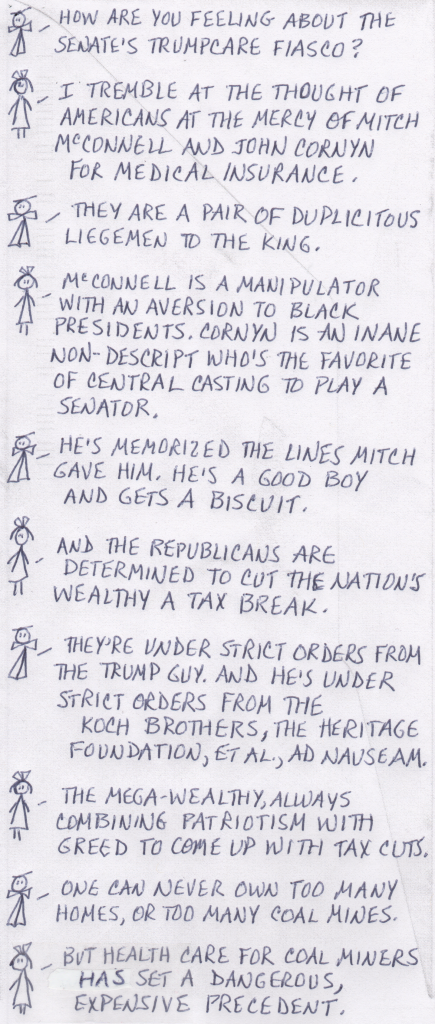 HOW ARE YOU FEELING ABOUT THE
SENATE'S TRUMPCARE FIASCO?
I TREMBLE AT THE THOUGHT OF
AMERICANS AT THE MERCY OF MITCH
McCONNELL AND JOHN CORNYN
FOR MEDICAL INSURANCE.
THEY ARE A PAIR OF DUPLICITOUS
LIEGEMEN TO THE KING.
McCONNELL IS A MANIPULATOR
WITH AN AVERSION TO BLACK
PRESIDENTS. CORNYN IS AN INANE
NON-DESCRIPT WHO'S THE FAVORITE
OF CENTRAL CASTING TO PLAY A
SENATOR.
HE'S MEMORIZED THE LINES MITCH
GAVE HIM. HE'S A GOOD BOY
AND GETS A BISCUIT.
AND THE REPUBLICANS ARE
DETERMINED TO CUT THE NATION'S
WEALTHY A TAX BREAK.
THEY'RE UNDER STRICT ORDERS FROM
THE TRUMP GUY. AND HE'S UNDER
STRICT ORDERS FROM THE
KOCH BROTHERS, THE HERITAGE
FOUNDATION, ET AL., AD NAUSEAM.
THE MEGA-WEALTHY, ALWAYS
COMBINING PATRIOTISM WITH
GREED TO COME UP WITH TAX CUTS.
ONE CAN NEVER OWN TOO MANY
HOMES, OR TOO MANY COAL MINES.
BUT HEALTH CARE FOR COAL MINERS
HAS SET A DANGEROUS,
EXPENSIVE PRECEDENT.